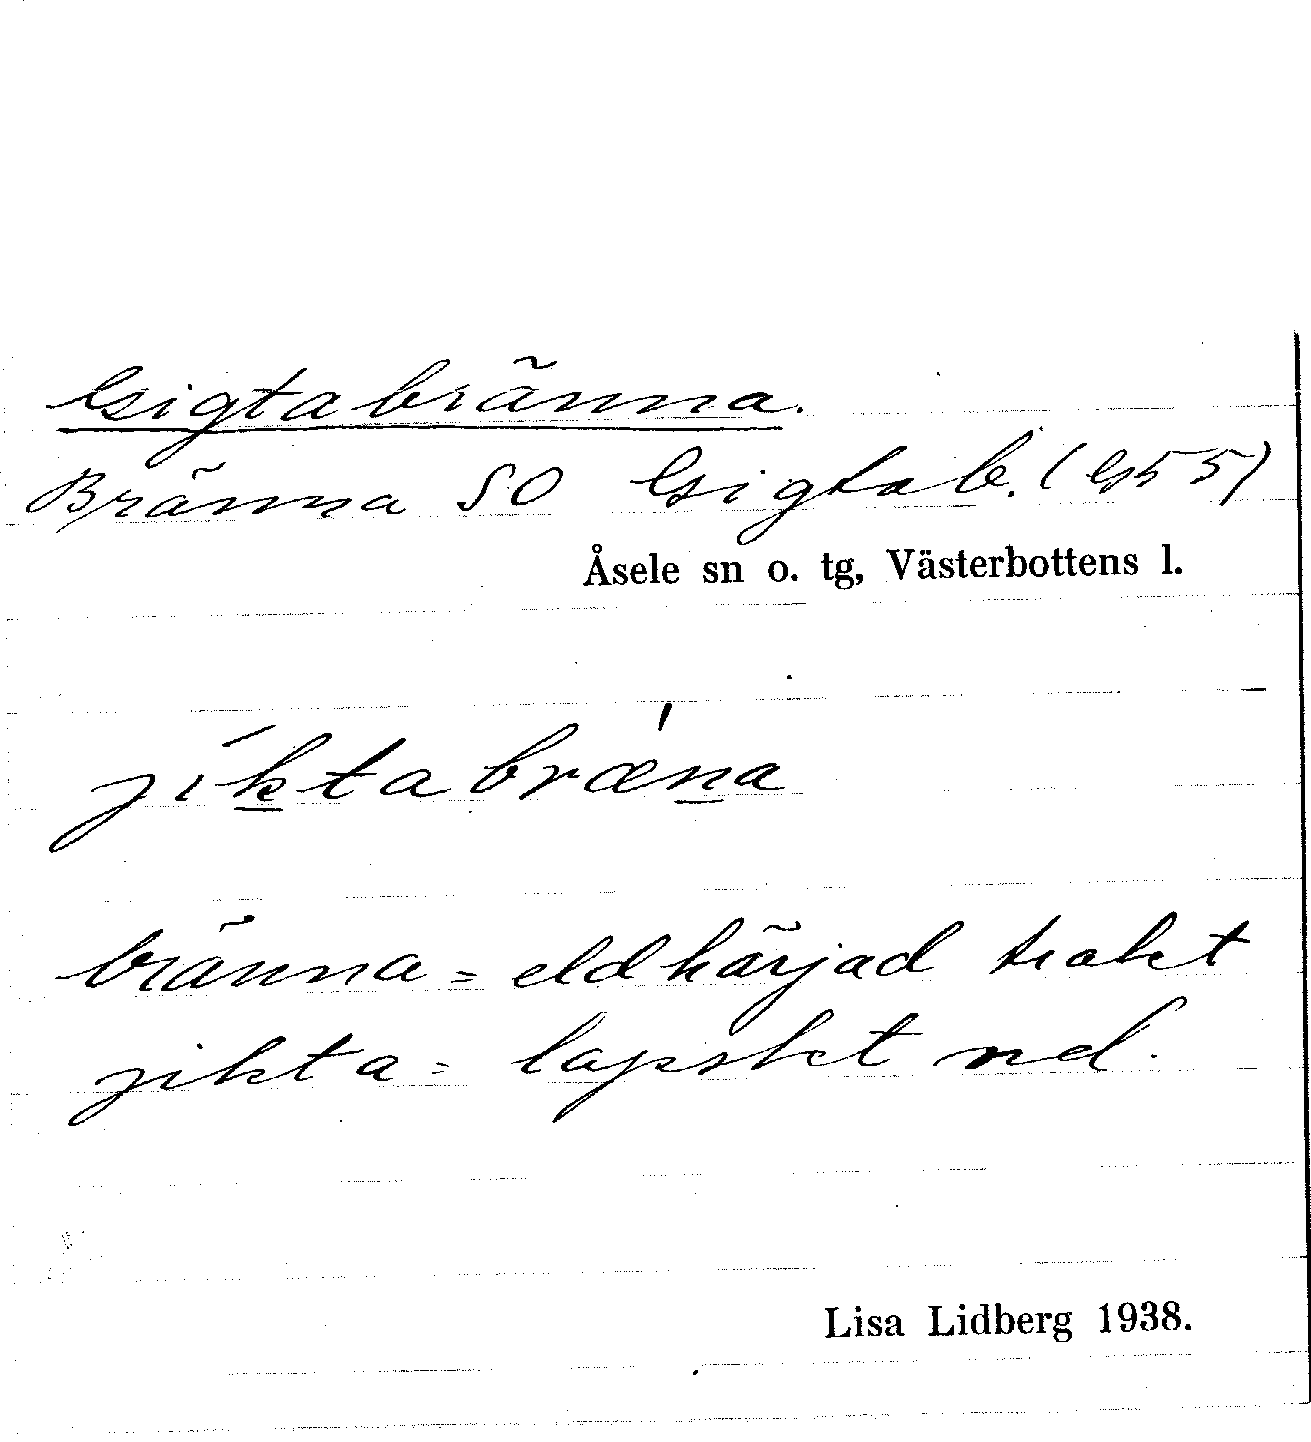 Gigtabränna.
Bränna SO Gigtab. (G55)
Åsele sn o. tg, Västerbottens l.
jíktabræ'na
bränna = eldhärjad trakt
jikta = lapskt nd.
Lisa Lidberg 1938.